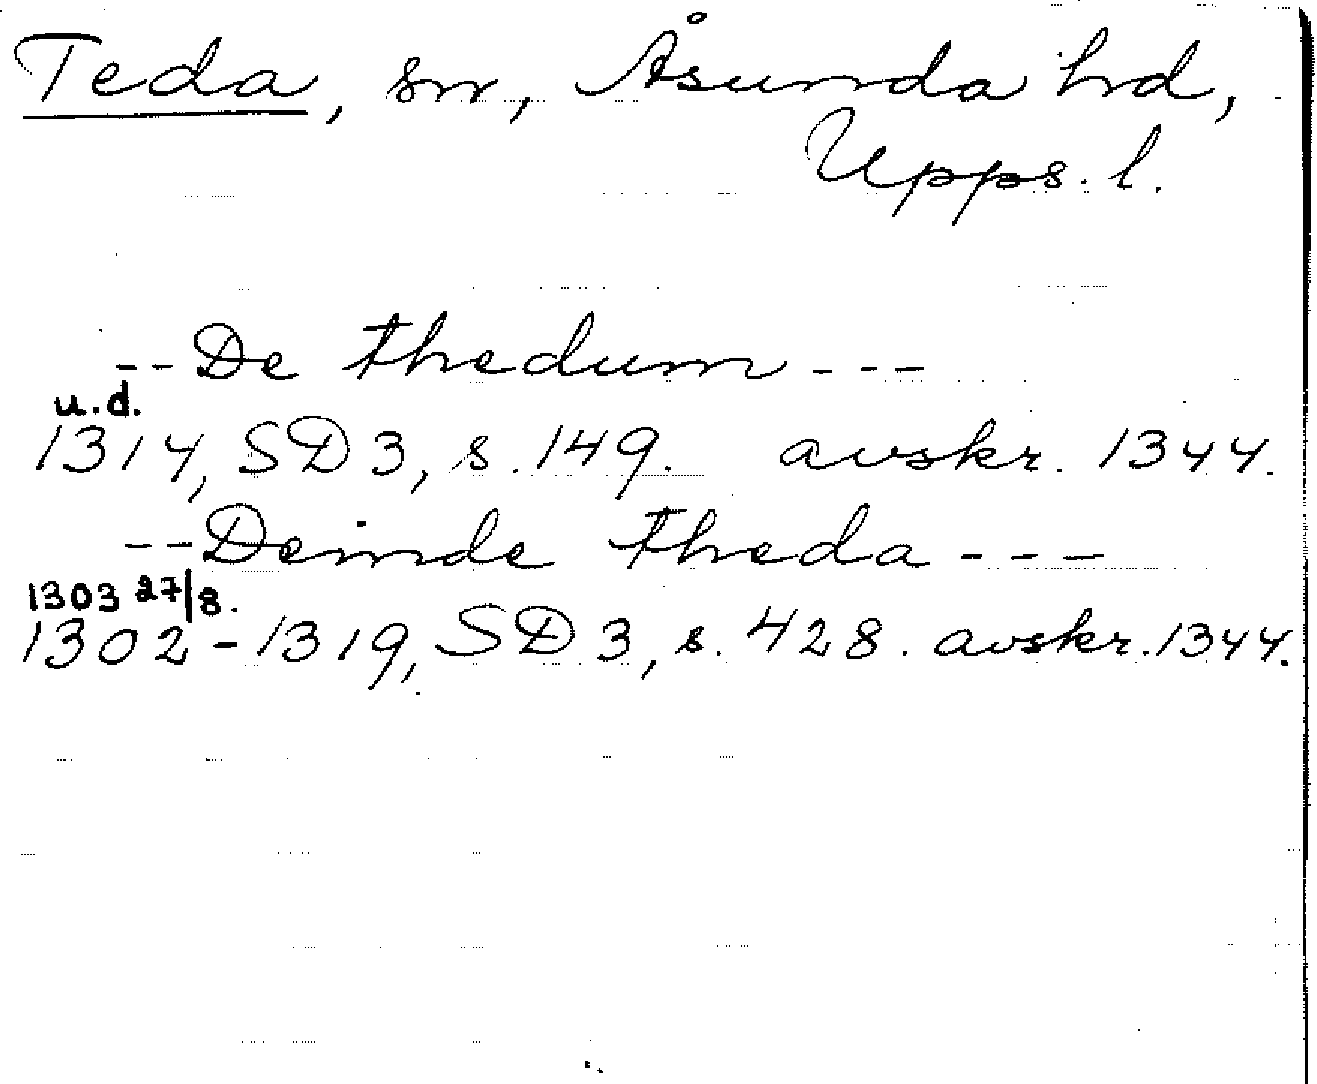 Teda, sn, Åsunda hd,
Upps. l.
-- De thedum ---
u.d.
1314, SD 3, s. 149. avskr. 1344.
-- Deinde theda ---
1303 27/8.
1302-1319, SD 3, s. 428. avskr. 1344.